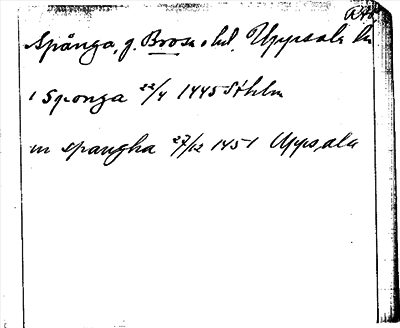 Spånga, g. Brosa skl. Uppsala län
i Sponga 22/4 1445 Sthlm
in spangha 27/12 1451 Uppsala